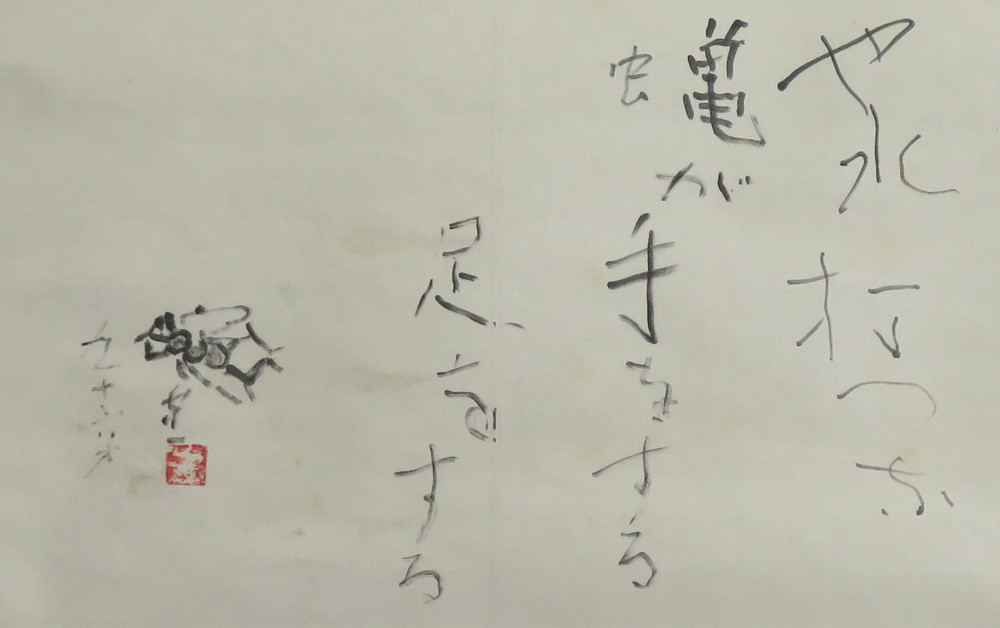 やれ打つな
蠅が手をする
足をする
九十六